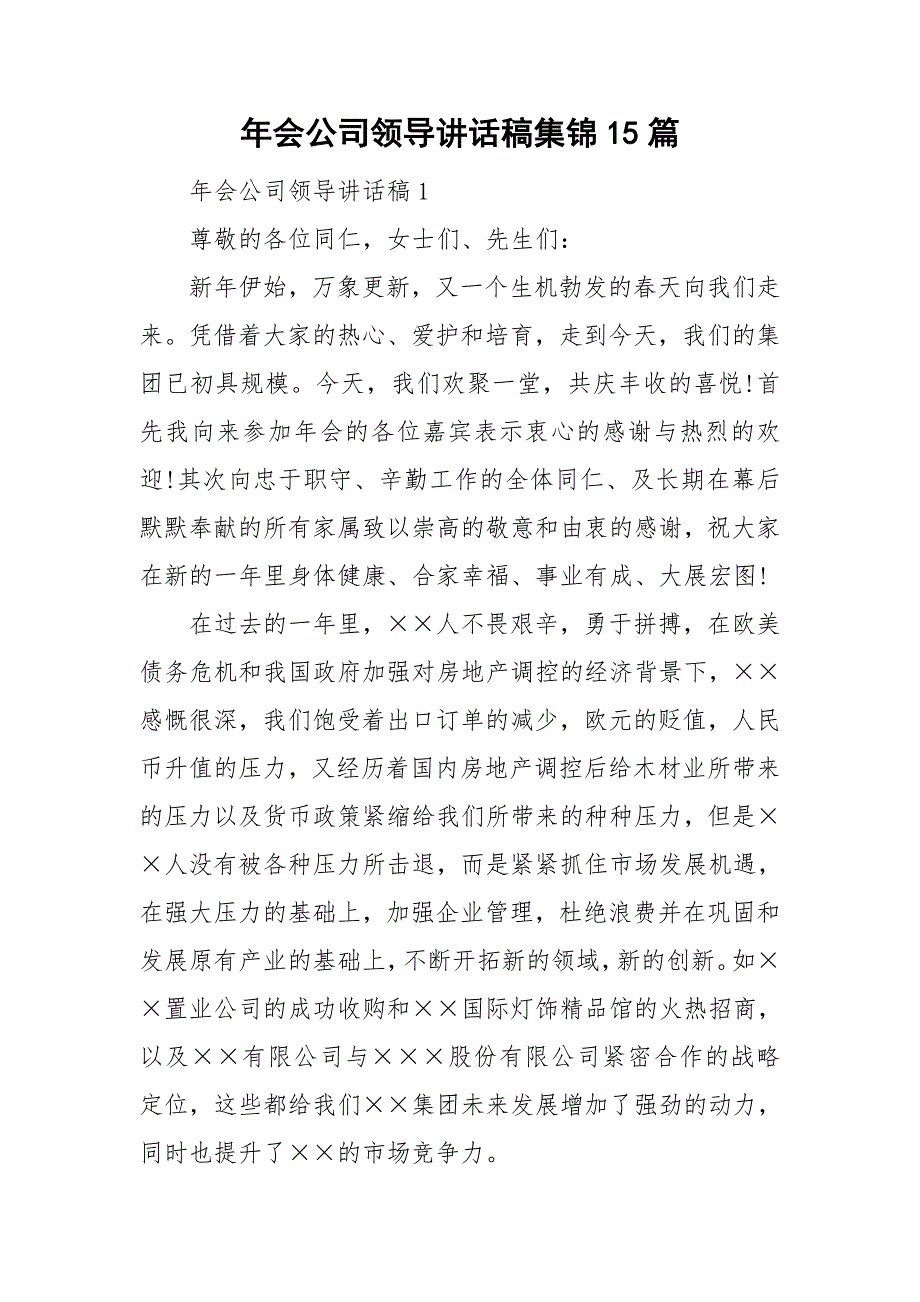 年会公司领导讲话稿集锦15篇
年会公司领导讲话稿1
尊敬的各位同仁，女士们、先生们：
新年伊始，万象更新，又一个生机勃发的春天向我们走
来。凭借着大家的热心、爱护和培育，走到今天，我们的集
团已初具规模。今天，我们欢聚一堂，共庆丰收的喜悦!首
先我向来参加年会的各位嘉宾表示衷心的感谢与热烈的欢
迎!其次向忠于职守、辛勤工作的全体同仁、及长期在幕后
默默奉献的所有家属致以崇高的敬意和由衷的感谢，祝大家
在新的一年里身体健康、合家幸福、事业有成、大展宏图!
在过去的一年里，××人不畏艰辛，勇于拼搏，在欧美
债务危机和我国政府加强对房地产调控的经济背景下，××
感慨很深，我们饱受着出口订单的减少，欧元的贬值，人民
币升值的压力，又经历着国内房地产调控后给木材业所带来
的压力以及货币政策紧缩给我们所带来的种种压力，但是×
×人没有被各种压力所击退，而是紧紧抓住市场发展机遇，
在强大压力的基础上，加强企业管理，杜绝浪费并在巩固和
发展原有产业的基础上，不断开拓新的领域，新的创新。如×
×置业公司的成功收购和××国际灯饰精品馆的火热招商，
以及××有限公司与×××股份有限公司紧密合作的战略
定位，这些都给我们××集团未来发展增加了强劲的动力，
同时也提升了××的市场竞争力。